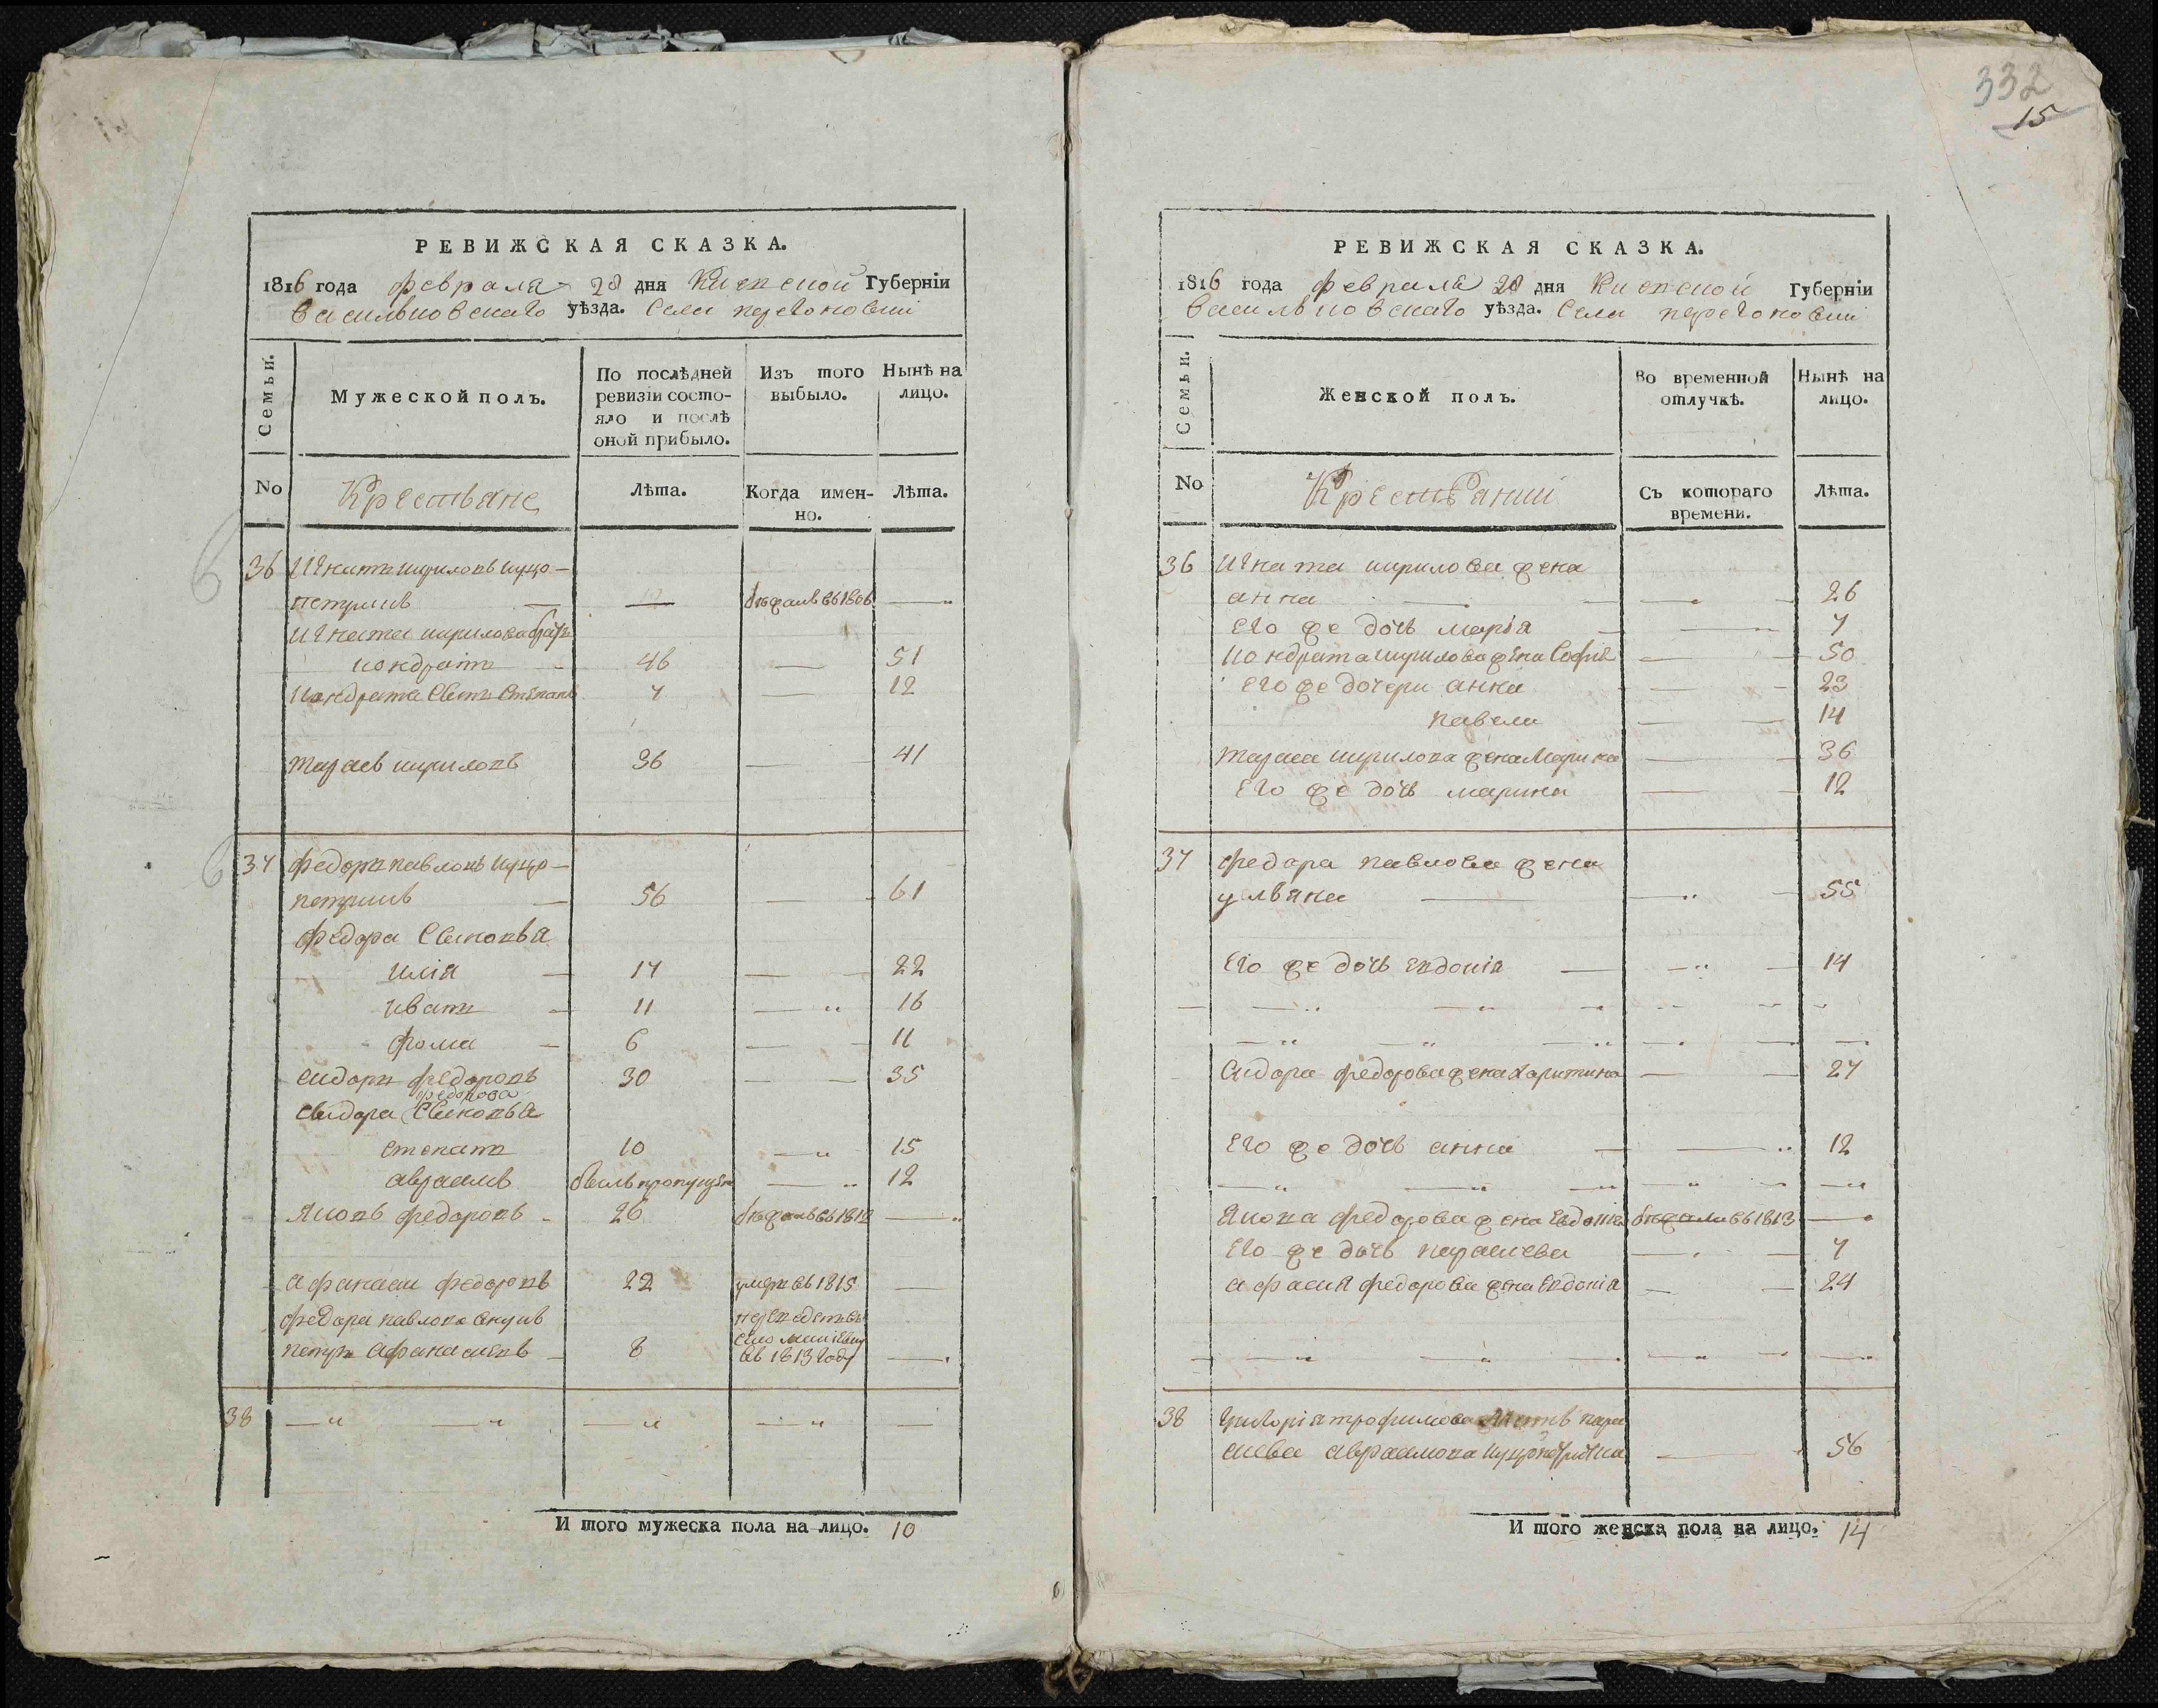 РЕВИЖСКАЯ СКАЗКА.
1816 года февраля 28 дня Киевской Губернїи
Васильковскаго уѣзда. Села перегоновки
Семьи.
Мужеской полъ.
По послѣдней ревизїи состояло и послѣ оной прибыло.
Изъ того выбыло.
Нынѣ на лицо.
No
Крестьяне
Лѣта.
Когда именно.
Лѣта.
36 Игнатъ кириловъ куцо-
петрикъ — бѣжалъ въ 1806 —
игната кирилова братъ
кондратъ 46 — 51
кондрата сынъ Степанъ 7 — 12
тарасъ кириловъ 36 — 41
37 федоръ павловъ куцо-
петрикъ 56 — 61
федора Сыновья
илія 17 — 22
иванъ 11 — 16
фома 6 — 11
сидоръ федоровъ 30 — 35
федорова
Сидора Сыновья
степанъ 10 — 15
авраамъ былъ пропущен — 12
яковъ федоровъ 26 бѣжалъ въ 1812 —
афанасий федоровъ 22 умеръ въ 1815 —
федора павлова внукъ переведенъ въ
село
петръ афанасиевъ 8 въ 1813 году —
38 — — — — —
И того мужеска пола на лицо. 10
332
15
РЕВИЖСКАЯ СКАЗКА.
1816 года февраля 28 дня Киевской Губернїи
Васильковскаго уѣзда. Села перегоновки
Семьи.
Женской полъ.
Во временной отлучкѣ.
Нынѣ на лицо.
No
Крестьянки
Съ котораго времени.
Лѣта.
36 Игната кирилова жена
анна — 26
Его же дочь марія — 7
кондрата кирилова жена Софія — 50
Его же дочери анна — 23
павла — 14
тараса кирилова жена Марина — 36
Его же дочь марина — 12
37 федора павлова жена
ульяна — 55
Его же дочь евдокія — 14
Сидора федорова жена харитина — 27
Его же дочь анна — 12
Якова федорова жена Евдокія бѣжала въ 1813 —
Его же дочь параскева — 7
афанасия федорова жена евдокія — 24
38 григорія трофимова мать пара
скева авраамова куцопетрична — 56
И того женска пола на лицо. 14